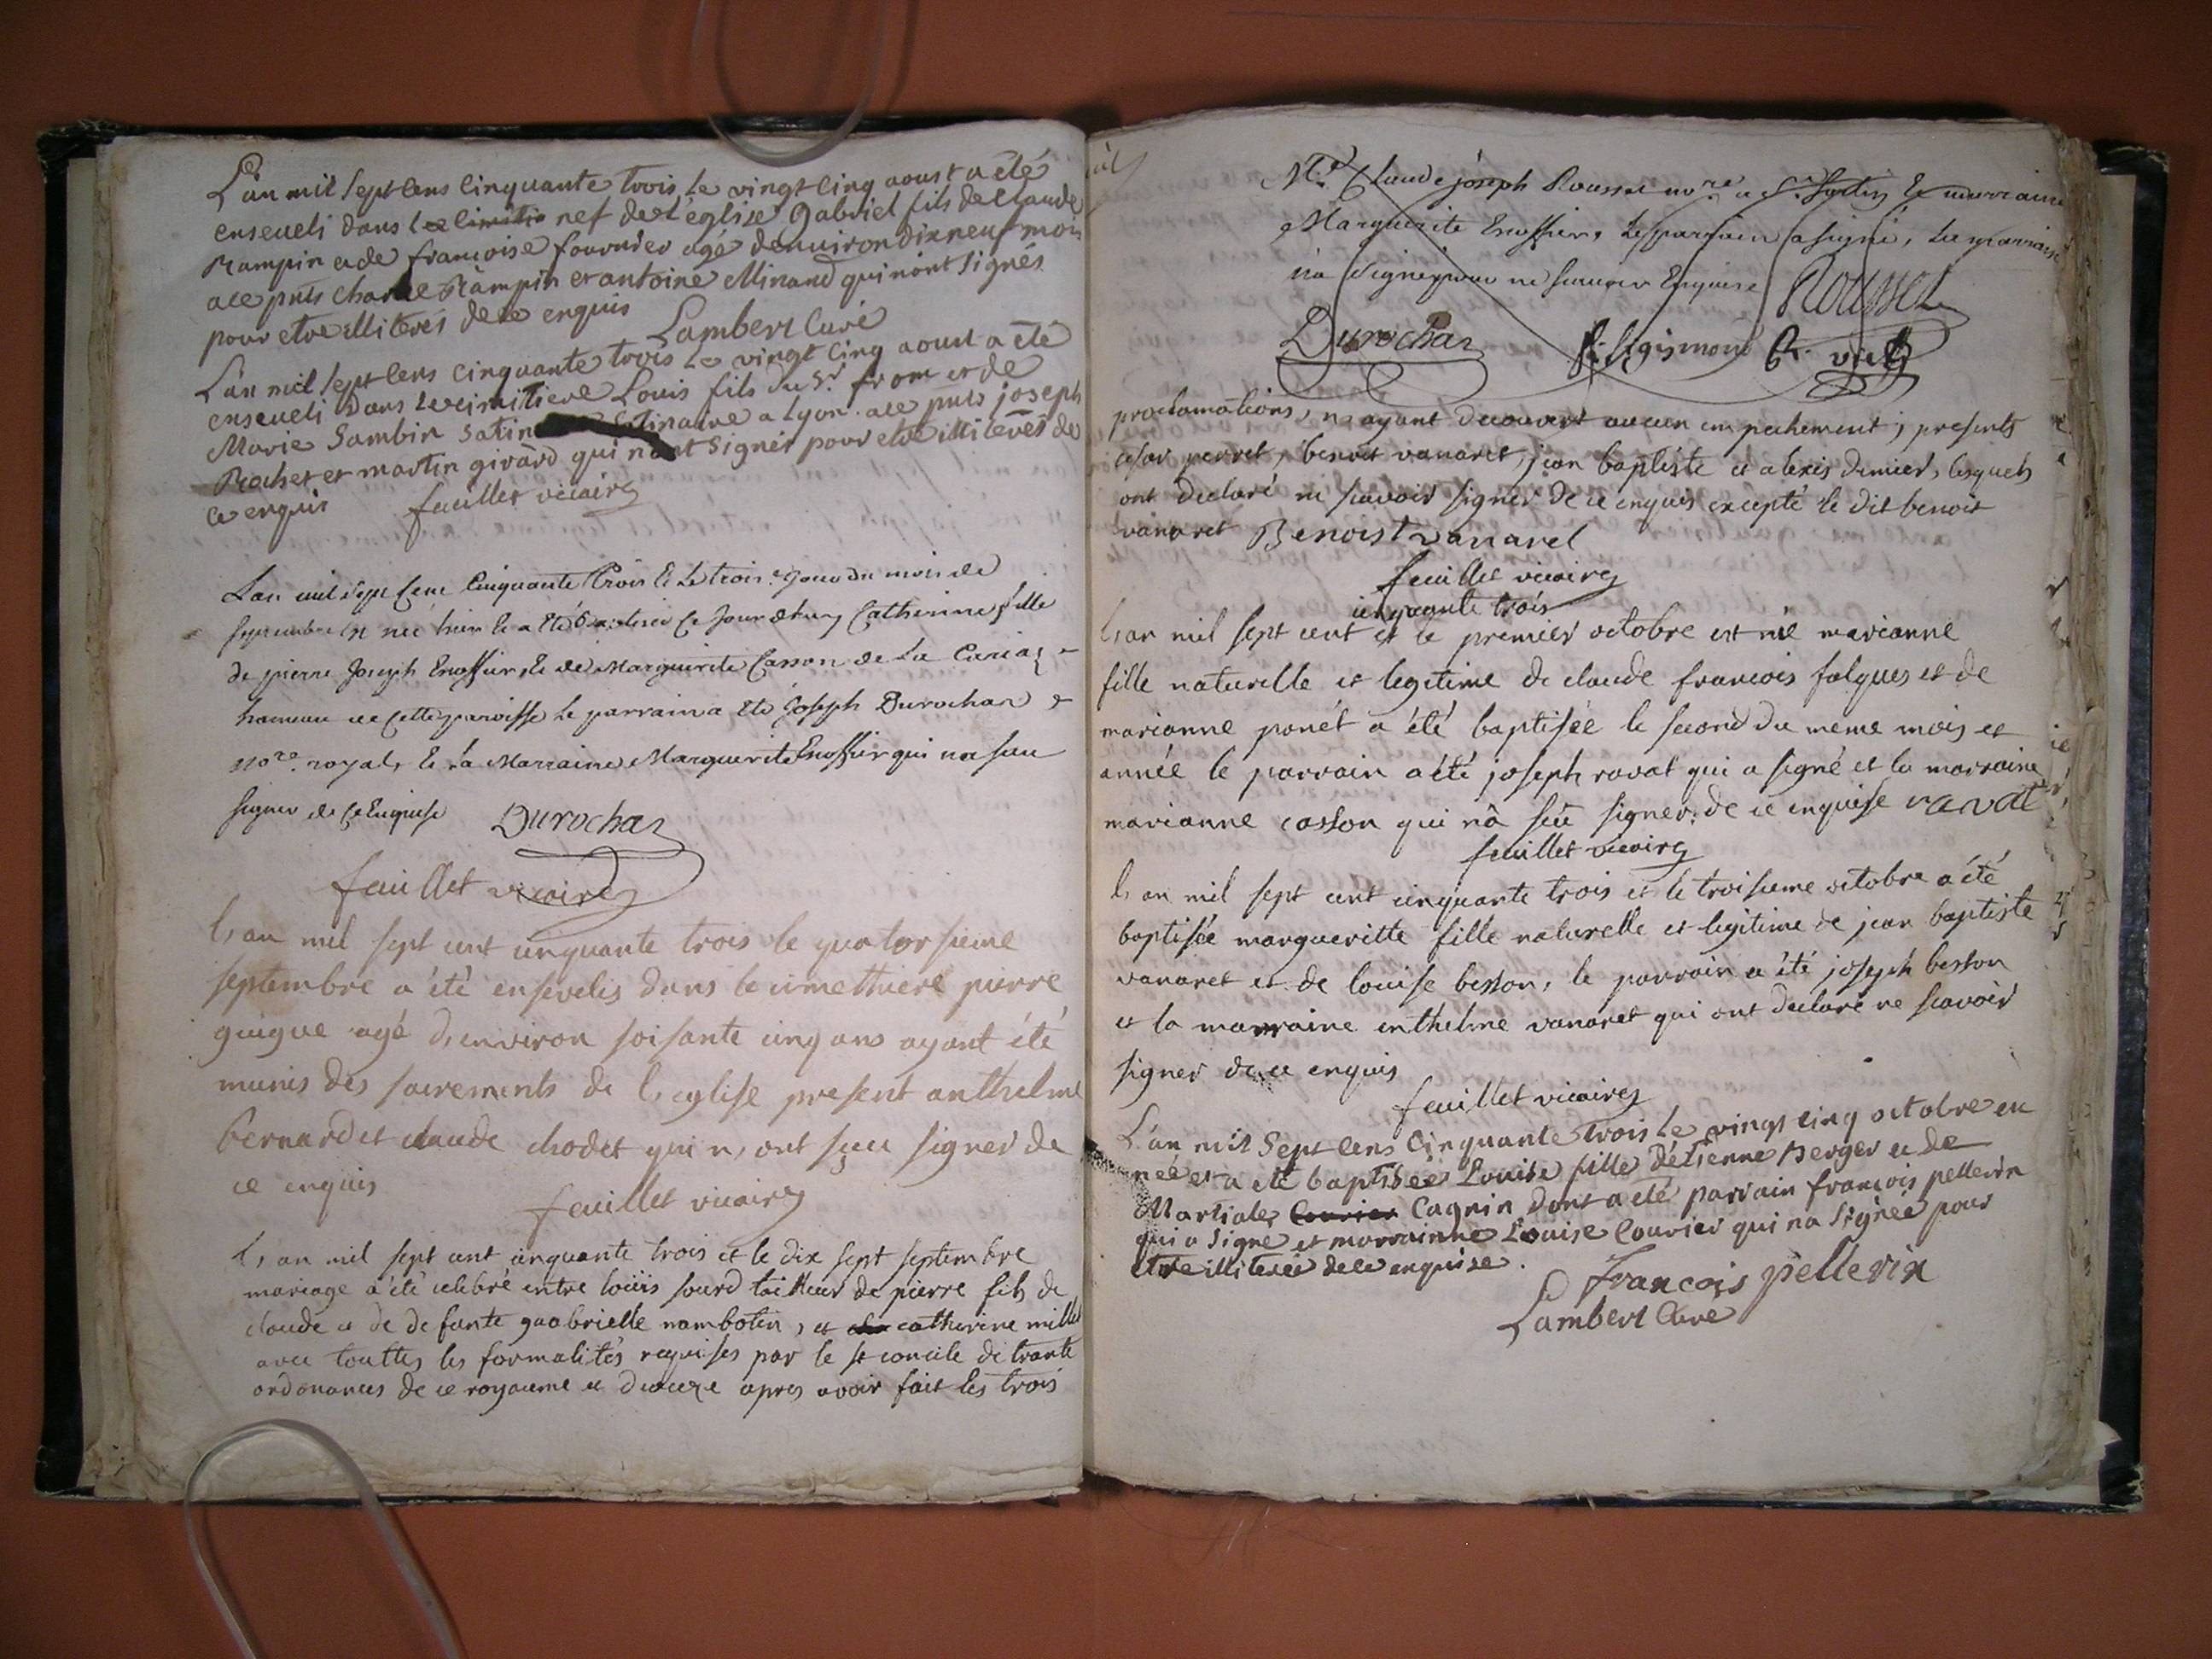 L'an mil sept cens cinquante trois le vingt cinq aoust a été
enseueli dans le nef de l'église Gabriel fils de Claude
Rampin et de francoise fournier agé denuiron dix neuf mois
ace pnts Charle Rampin et antoine Minand qui n'ont signés
pour etre illiterés de ce enquis Lambert Curé
L'an mil sept cens cinquante trois le vingt cinq aoust a été
enseueli dans le cimitiere Louis fils du Sr from et de
Marie Sambin satin a Lyon ace pnts joseph
Rochet et martin girard qui n'ont signés pour etre illiterés de
ce enquis feuillet vicaire
Lan mil sept cent Cinquante trois & Le trois.e jour du mois de
septembre est née hier & a été baptisée ce jourdhuy Catherine fille
de pierre Joseph Enossier & de Marguerite Casson de La
hameau de cette paroisse Le parrain a été Joseph Durochar
nore. royal, & La Marraine Marguerite Enossier qui na sceu
signer de ce Enquise Durochar
feuillet vicaire
l'an mil sept cent cinquante trois le quatorsieme
septembre a été ensevelis dans le cimettiere pierre
guigue agé d'environ soisante cinq ans ayant été
munis des sacrements de l'eglise present anthelme
bernard et claude chodet qui n'ont sçeu signer de
ce enquis
feuillet vicaire
l'an mil sept cent cinquante trois et le dix sept septembre
mariage a été celebré entre loüis sourd tailleur de pierre fils de
claude et de defunte gabrielle nambotin, et catherine millet
avec touttes les formalités requises par le st concile de trante
ordonances de ce royaume et dioceze apres avoir fait les trois
Mre Claude joseph Rousset nore a & marraine
Marguerite Enossier, Le parrain a signé, La marraine
n'a signé pour ne scauoir Enquise Rousset
Durochar Sigismond
proclamations, n'ayant decouvert aucun empechement; presents
cesar perret, benoit vanaret, jean baptiste et alexis demier, lesquels
ont declaré ne scavoir signer de ce enquis excepté le dit benoit
vanaret Benoist vanarel
feuillet vicaire
cinquante trois
l'an mil sept cent et le premier octobre est née marianne
fille naturelle et legitime de claude francois falques et de
marianne ponét a été baptisée le second du meme mois et
année le parrain a été joseph ravat qui a signé et la marraine
marianne casson qui n'a sçû signer de ce enquise ravat
feuillet vicaire
l'an mil sept cent cinquante trois et le troisieme octobre a été
baptisée margueritte fille naturelle et legitime de jean baptiste
vanaret et de louise besson, le parrain a été joseph besson
et la marraine enthelme vanaret qui ont declaré ne scavoir
signer de ce enquis
feuillet vicaire
L'an mil Sept cens Cinquante trois le vingt cinq octobre en
née et a été baptisée Louise fille d'étienne Berger et de
Martiale Courier Cagnin dont a été parrain françois pellerin
qui a signé et marrainne Louise Courier qui na signée pour
etre illiterée de ce enquise.
francois pellerin
Lambert Curé